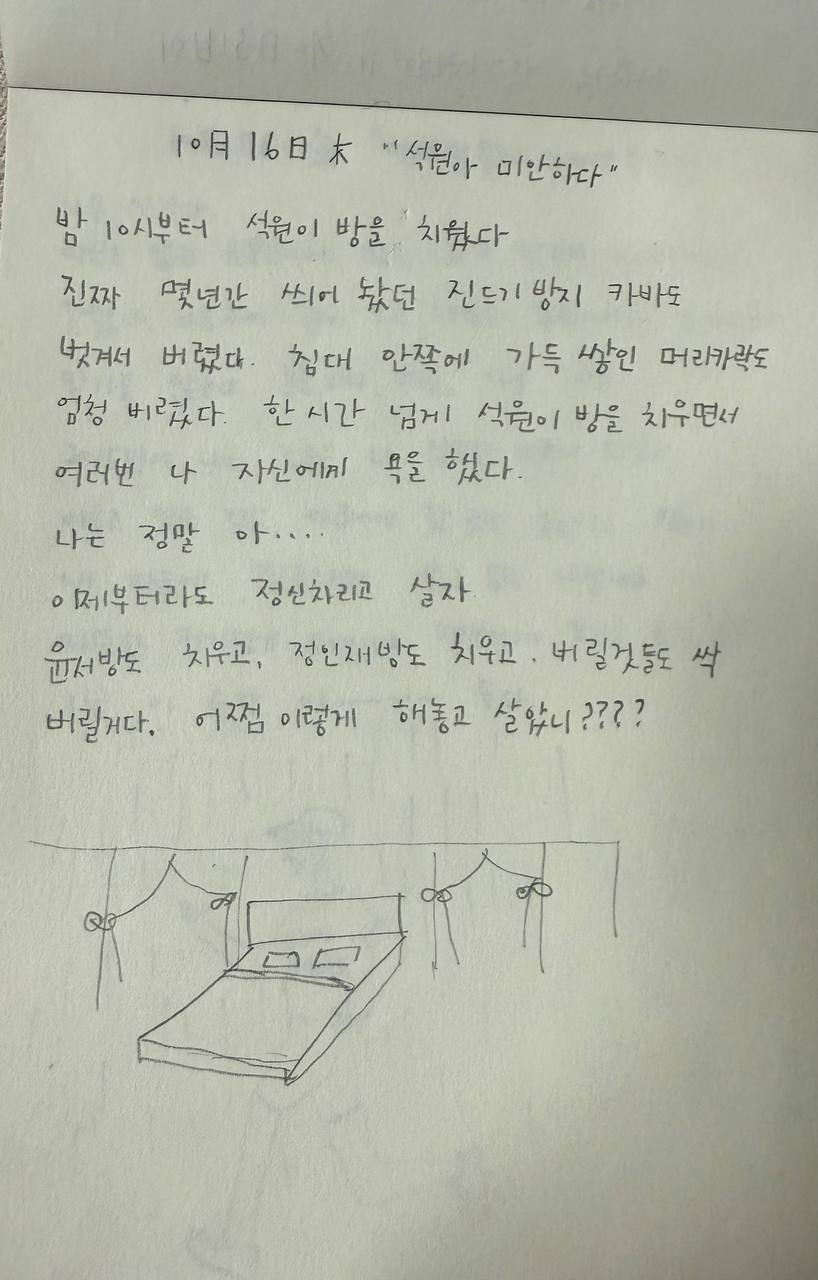 10月 16日 木 "석원아 미안하다"
밤 10시부터 석원이 방을 치웠다
진짜 몇년간 씌어 놨던 진드기 방지 카바도
벗겨서 버렸다. 침대 안쪽에 가득 쌓인 머리카락도
엄청 버렸다. 한 시간 넘게 석원이 방을 치우면서
여러번 나 자신에게 욕을 했다.
나는 정말 아....
이제부터라도 정신차리고 살자
윤서방도 치우고, 정인재방도 치우고. 버릴것들도 싹
버릴거다. 어쩜 이렇게 해놓고 살았니????